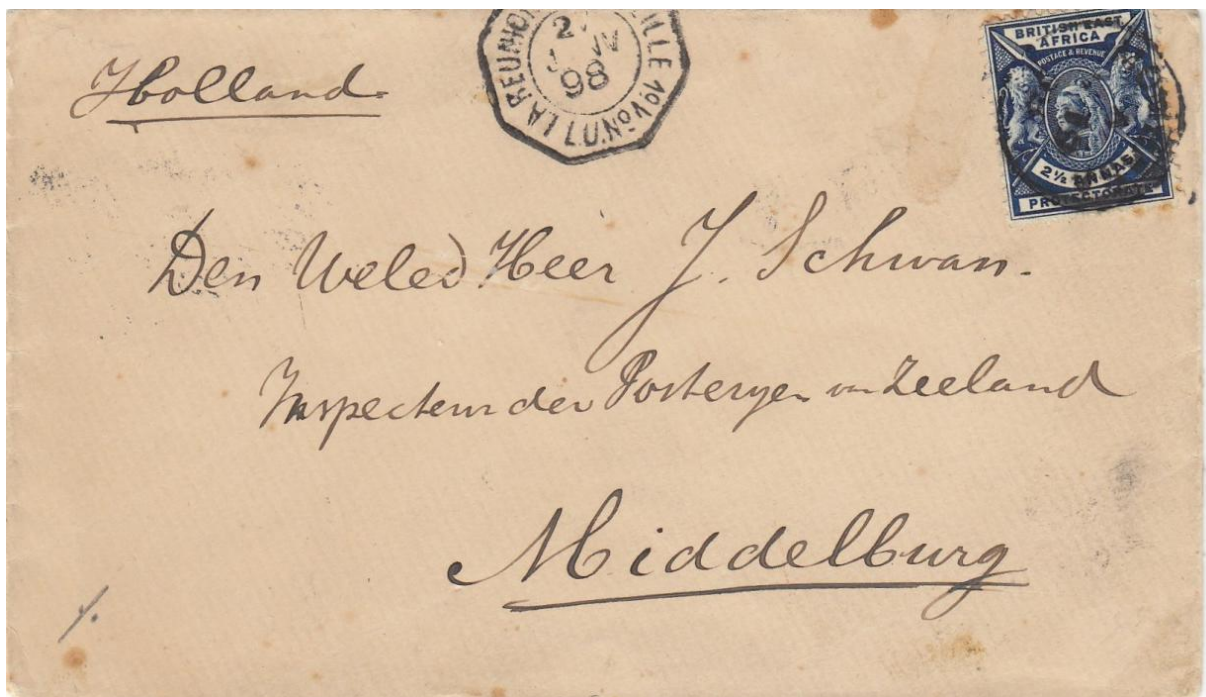 Holland
LA REUNION
L.U.N.
98
BRITISH EAST
AFRICA
POSTAGE & REVENUE
2½ ANNAS
PROTECTORATE
Den Weled Heer J. Schwan.
Inspecteur der Posteryen van Zeeland
Middelburg